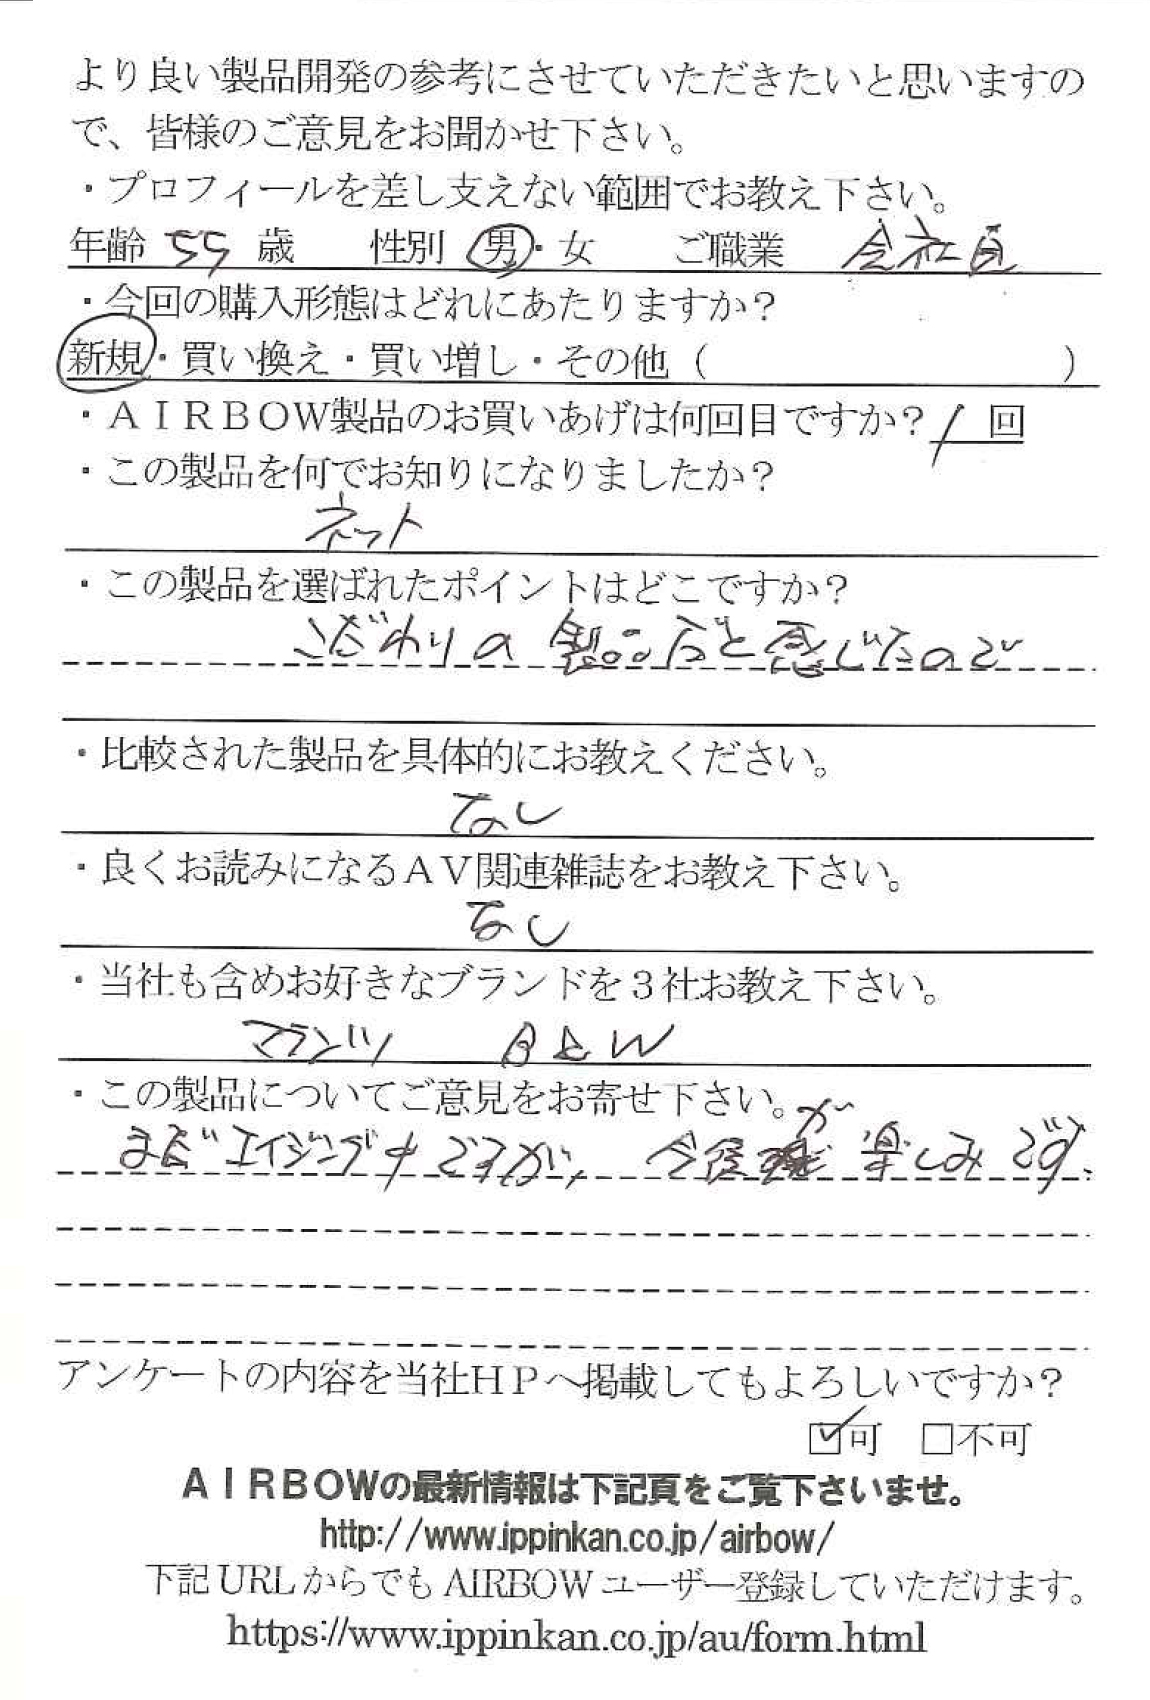 より良い製品開発の参考にさせていただきたいと思いますの
で、皆様のご意見をお聞かせ下さい。
・プロフィールを差し支えない範囲でお教え下さい。
年齢 55 歳 性別 男・女 ご職業 会社員
・今回の購入形態はどれにあたりますか？
新規・買い換え・買い増し・その他（ ）
・ＡＩＲＢＯＷ製品のお買いあげは何回目ですか？ 1 回
・この製品を何でお知りになりましたか？
ネット
・この製品を選ばれたポイントはどこですか？
こだわりの製品だと感じたので
・比較された製品を具体的にお教えください。
なし
・良くお読みになるＡＶ関連雑誌をお教え下さい。
なし
・当社も含めお好きなブランドを３社お教え下さい。
マランツ B&W
・この製品についてご意見をお寄せ下さい。
まだエイジング中ですが、今後が楽しみです。
アンケートの内容を当社ＨＰへ掲載してもよろしいですか？
☑可 □不可
ＡＩＲＢＯＷの最新情報は下記頁をご覧下さいませ。
http://www.ippinkan.co.jp/airbow/
下記URLからでもAIRBOWユーザー登録していただけます。
https://www.ippinkan.co.jp/au/form.html